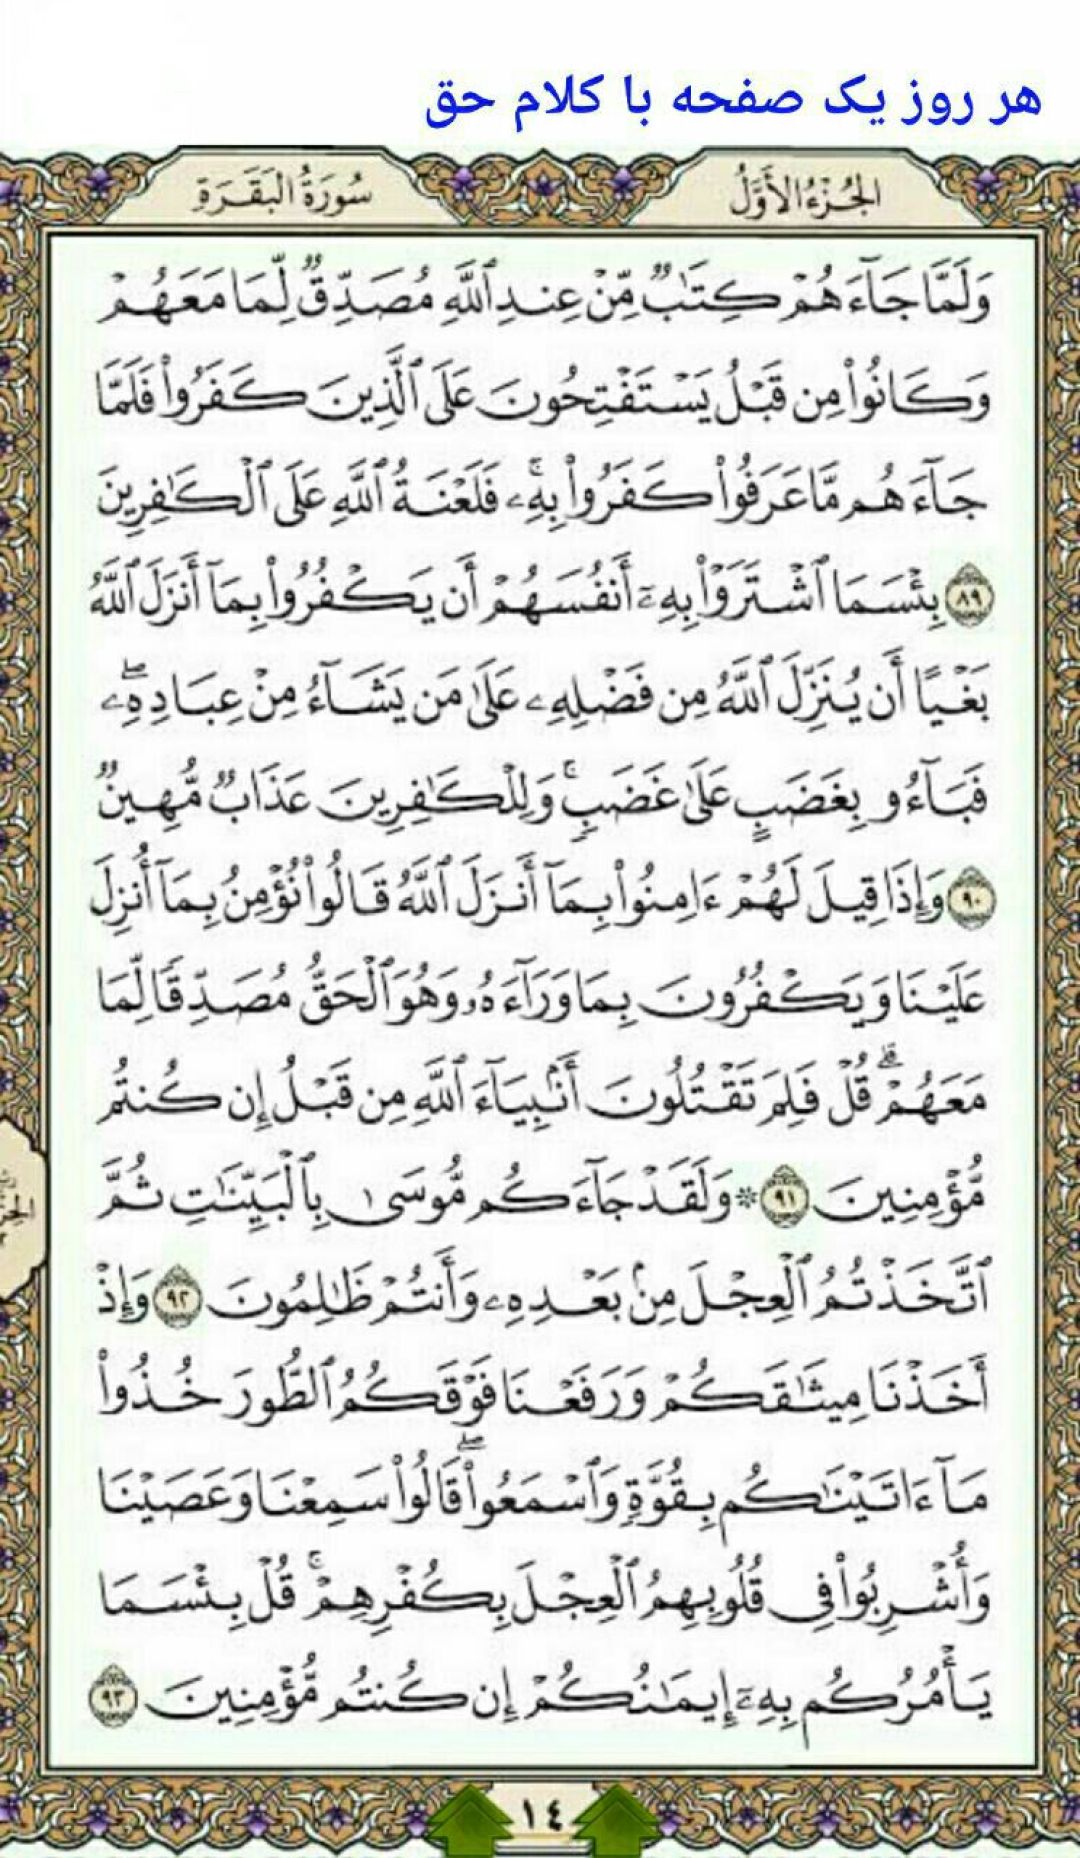 هر روز یک صفحه با کلام حق
الجُزْءُ الأَوَّلُ
سُورَةُ البَقَرَةِ
وَلَمَّا جَآءَهُمْ كِتَٰبٌ مِّنْ عِندِ ٱللَّهِ مُصَدِّقٌ لِّمَا مَعَهُمْ
وَكَانُوا۟ مِن قَبْلُ يَسْتَفْتِحُونَ عَلَى ٱلَّذِينَ كَفَرُوا۟ فَلَمَّا
جَآءَهُم مَّا عَرَفُوا۟ كَفَرُوا۟ بِهِۦ ۚ فَلَعْنَةُ ٱللَّهِ عَلَى ٱلْكَٰفِرِينَ
٨٩ بِئْسَمَا ٱشْتَرَوْا۟ بِهِۦٓ أَنفُسَهُمْ أَن يَكْفُرُوا۟ بِمَآ أَنزَلَ ٱللَّهُ
بَغْيًا أَن يُنَزِّلَ ٱللَّهُ مِن فَضْلِهِۦ عَلَىٰ مَن يَشَآءُ مِنْ عِبَادِهِۦ ۖ
فَبَآءُو بِغَضَبٍ عَلَىٰ غَضَبٍ ۚ وَلِلْكَٰفِرِينَ عَذَابٌ مُّهِينٌ
٩٠ وَإِذَا قِيلَ لَهُمْ ءَامِنُوا۟ بِمَآ أَنزَلَ ٱللَّهُ قَالُوا۟ نُؤْمِنُ بِمَآ أُنزِلَ
عَلَيْنَا وَيَكْفُرُونَ بِمَا وَرَآءَهُۥ وَهُوَ ٱلْحَقُّ مُصَدِّقًا لِّمَا
مَعَهُمْ ۗ قُلْ فَلِمَ تَقْتُلُونَ أَنۢبِيَآءَ ٱللَّهِ مِن قَبْلُ إِن كُنتُم
مُّؤْمِنِينَ ٩١ ۞ وَلَقَدْ جَآءَكُم مُّوسَىٰ بِٱلْبَيِّنَٰتِ ثُمَّ
ٱتَّخَذْتُمُ ٱلْعِجْلَ مِنۢ بَعْدِهِۦ وَأَنتُمْ ظَٰلِمُونَ ٩٢ وَإِذْ
أَخَذْنَا مِيثَٰقَكُمْ وَرَفَعْنَا فَوْقَكُمُ ٱلطُّورَ خُذُوا۟
مَآ ءَاتَيْنَٰكُم بِقُوَّةٍ وَٱسْمَعُوا۟ ۖ قَالُوا۟ سَمِعْنَا وَعَصَيْنَا
وَأُشْرِبُوا۟ فِى قُلُوبِهِمُ ٱلْعِجْلَ بِكُفْرِهِمْ ۚ قُلْ بِئْسَمَا
يَأْمُرُكُم بِهِۦٓ إِيمَٰنُكُمْ إِن كُنتُم مُّؤْمِنِينَ ٩٣
١٤